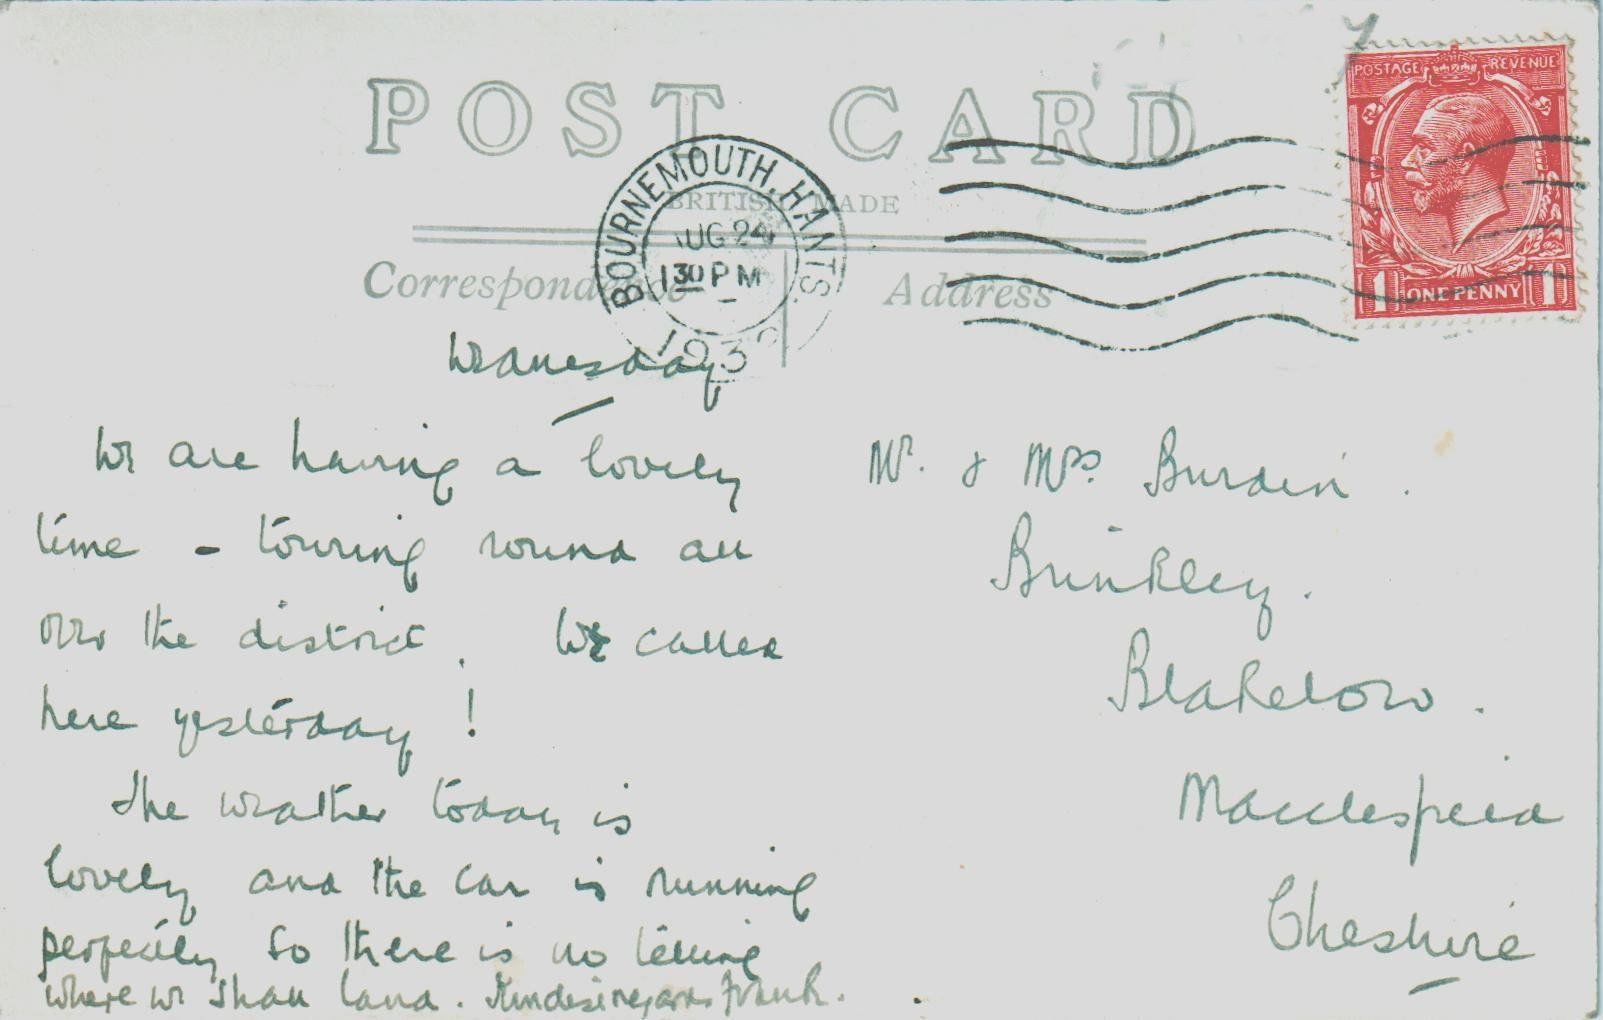 POST CARD
BRITISH MADE
Correspondence
Address
POSTAGE REVENUE
1 ONE PENNY 1
BOURNEMOUTH, HANTS.
AUG 24
1 30 PM
193
Wednesday
We are having a lovely
time - touring round all
over the district. We called
here yesterday!
The weather today is
lovely and the car is running
perfectly so there is no telling
where we shall land. Kindest regards Frank.
Mr. & Mrs. Burdin.
Brinkley.
Blakelow.
Macclesfield
Cheshire